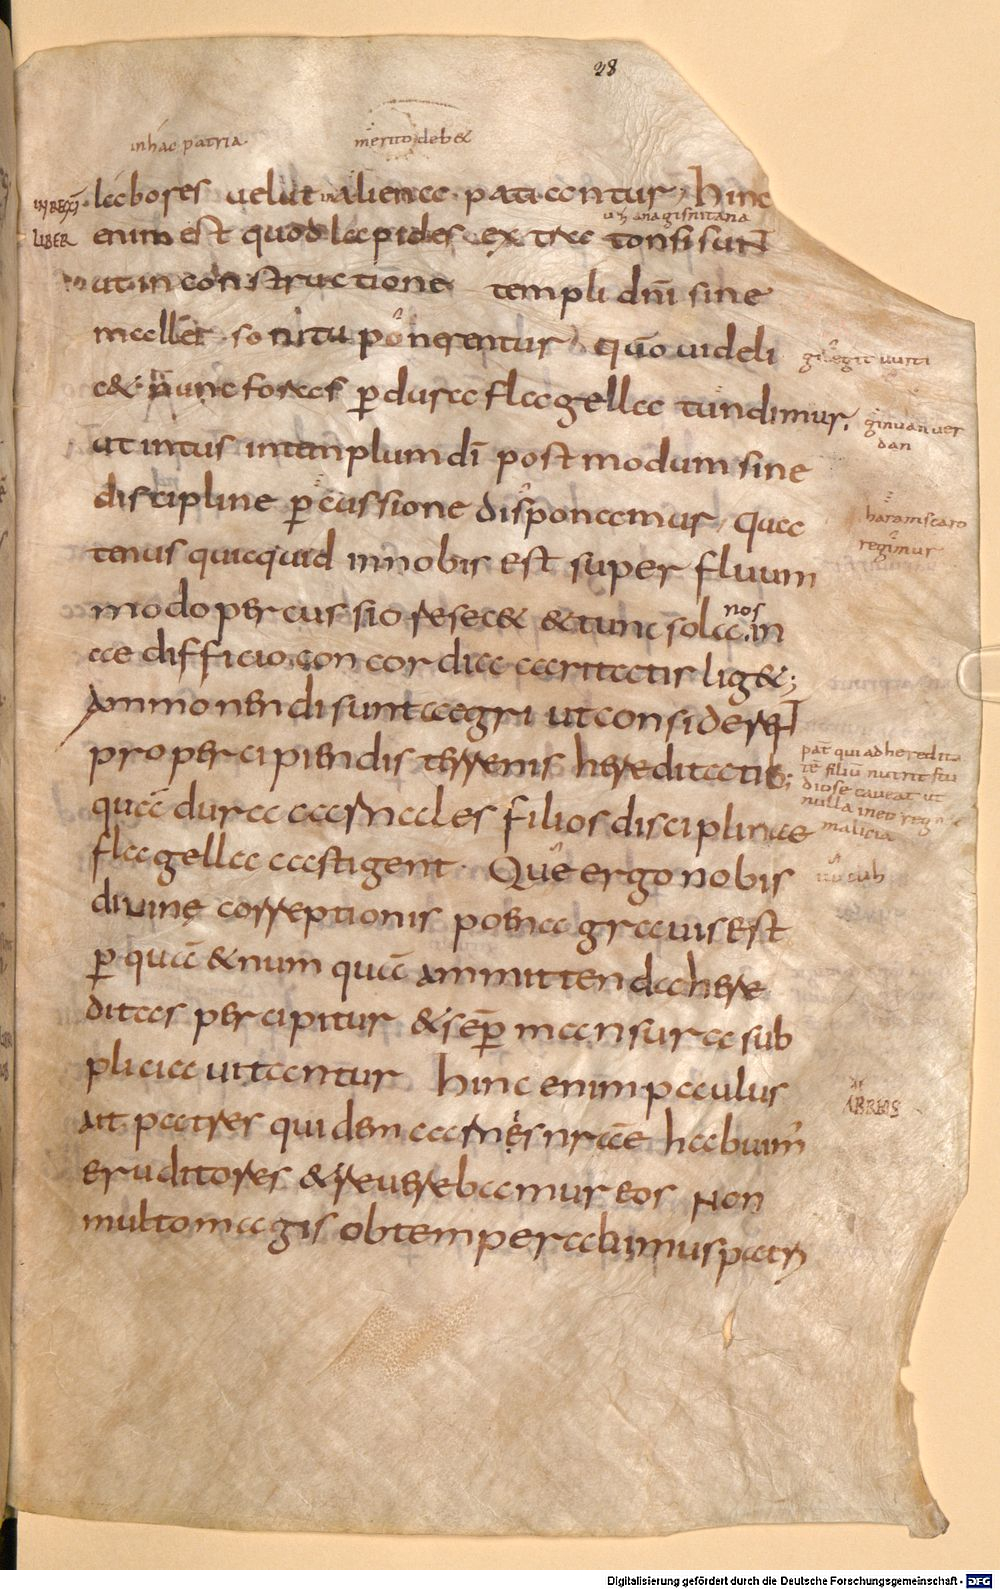 28
in hac patria
merito deb&
IN REGŪ
LIBER
labores velut in aliena patiantur, hinc
uh anagisnitana
enim est quod lapides extra tonsi sunt
ut in constructione templi dn̄i sine
mallei sonitu ponerentur, quō videli
c& nunc foras p̱ dura flagella tundimur.
ut intus in templum dī postmodum sine
discipline p̱cussione disponamur, Qua
tenus quicquid in nobis est superfluum
nos
modo percussio resec& & tunc sola in
aedificio concordia caritatis lig&;
Ammonendi sunt aegri ut considerent
pro percipiendis terrenis hereditatib;
quā dura carnales filios disciplinae
flagella castigent. Que ergo nobis
divine correptionis poena gravis est
p̱ quā & numquā ammittenda here
ditas percipitur & sēp̱ mansura sub
plicia vitantur hinc enim paulus
ait patres quidem carnis nr̄ae habuim'
eruditores & reverebamur eos Non
multo magis obtemperabimus patri
ginvanver
dan
haramscaro
regimur
pat̄ qui ad heredita
tē filiū nutrit stu
diose caveat ut
nulla in eo regn
malicia
Digitalisierung gefördert durch die Deutsche Forschungsgemeinschaft - DFG